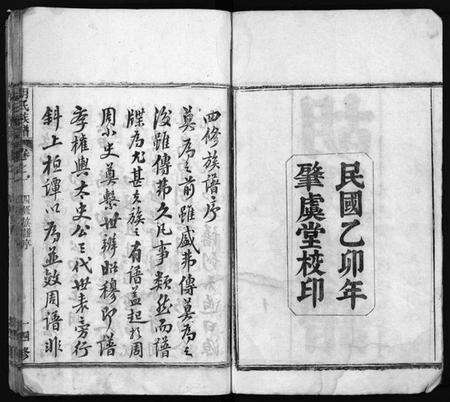 民國乙卯年
肇虞堂校印
四修族譜序
莫為之前雖盛弗傳莫為之
後雖傳弗久凡事類然而譜
牒為尤甚氏族之有譜蓋起於周
周小史奠繫世辨昭穆即譜
李權輿太史公三代世表旁行
斜上桓譚以為並效周譜非
胡氏族譜 卷一
四修族譜序
一 四修